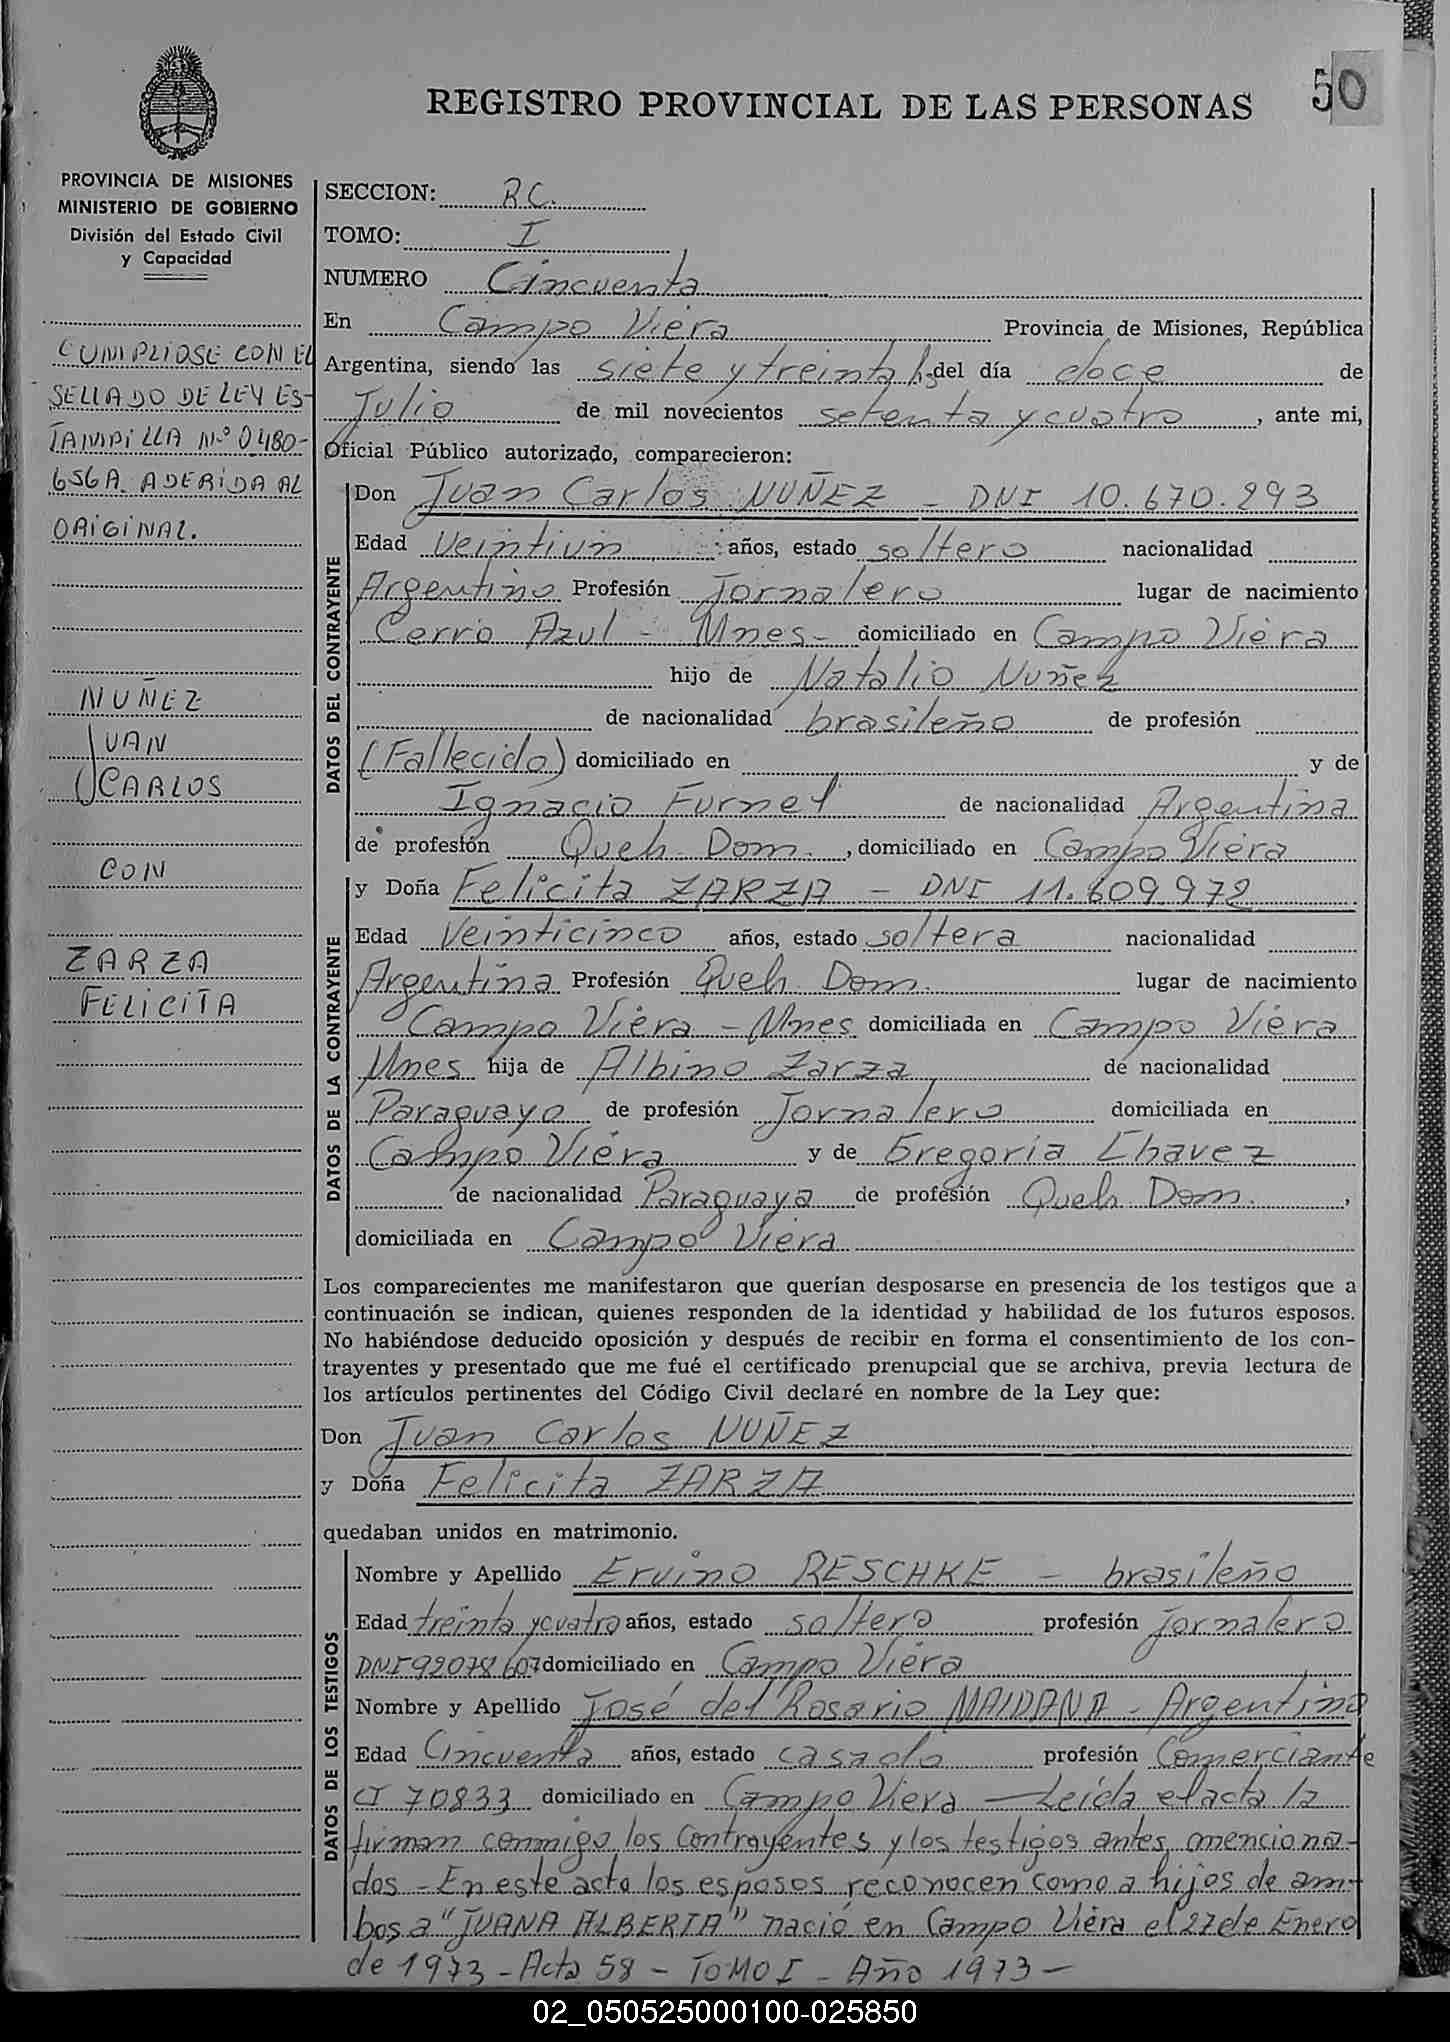 50
REGISTRO PROVINCIAL DE LAS PERSONAS
PROVINCIA DE MISIONES
MINISTERIO DE GOBIERNO
División del Estado Civil
y Capacidad
CUMPLIOSE CON EL
SELLADO DE LEY ES-
TAMPILLA Nº 0480-
656A. ADERIDA AL
ORIGINAL.
NUÑEZ
JUAN
CARLOS
CON
ZARZA
FELICITA
SECCION: RC.
TOMO: I
NUMERO Cincuenta
En Campo Viera Provincia de Misiones, República
Argentina, siendo las siete y treinta hs del día doce de
Julio de mil novecientos setenta y cuatro, ante mi,
Oficial Público autorizado, comparecieron:
DATOS DEL CONTRAYENTE
Don Juan Carlos NUÑEZ - DNI 10.670.293
Edad Veintiun años, estado soltero nacionalidad
Argentino Profesión Jornalero lugar de nacimiento
Cerro Azul - Mnes- domiciliado en Campo Viera
hijo de Natalio Nuñez
de nacionalidad brasileño de profesión
(Fallecido) domiciliado en y de
Ignacio Furnel de nacionalidad Argentina
de profesión Queh. Dom., domiciliado en Campo Viera
DATOS DE LA CONTRAYENTE
y Doña Felicita ZARZA - DNI 11.609.972
Edad Veinticinco años, estado soltera nacionalidad
Argentina Profesión Queh. Dom. lugar de nacimiento
Campo Viera - Mnes domiciliada en Campo Viera
Mnes hija de Albino Zarza de nacionalidad
Paraguayo de profesión Jornalero domiciliada en
Campo Viera y de Gregoria Chavez
de nacionalidad Paraguaya de profesión Queh. Dom.,
domiciliada en Campo Viera
Los comparecientes me manifestaron que querían desposarse en presencia de los testigos que a
continuación se indican, quienes responden de la identidad y habilidad de los futuros esposos.
No habiéndose deducido oposición y después de recibir en forma el consentimiento de los con-
trayentes y presentado que me fué el certificado prenupcial que se archiva, previa lectura de
los artículos pertinentes del Código Civil declaré en nombre de la Ley que:
Don Juan Carlos NUÑEZ
y Doña Felicita ZARZA
quedaban unidos en matrimonio.
DATOS DE LOS TESTIGOS
Nombre y Apellido Ervino RESCHKE - brasileño
Edad treinta y cuatro años, estado soltero profesión jornalero
DNI 92078607 domiciliado en Campo Viera
Nombre y Apellido José del Rosario MAIDANA - Argentino
Edad Cincuenta años, estado casado profesión Comerciante
CI 70833 domiciliado en Campo Viera - Leída el acta la
firman conmigo los contrayentes y los testigos antes menciona-
dos - En este acto los esposos reconocen como a hijos de am-
bos a "JUANA ALBERTA" nació en Campo Viera el 27 de Enero
de 1973 - Acta 58 - TOMO I - Año 1973 -
02_050525000100-025850